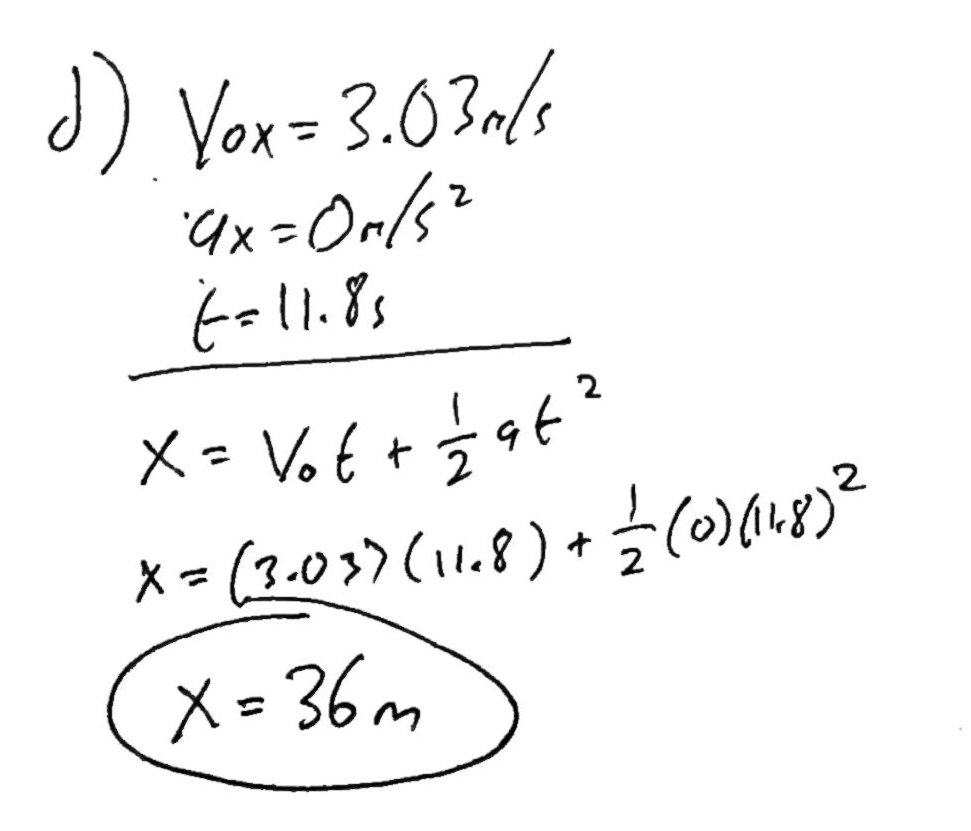 d) Vox = 3.03m/s
ax = 0m/s²
t = 11.8s
x = V₀t + 1/2 at²
x = (3.03)(11.8) + 1/2 (0)(11.8)²
x = 36m